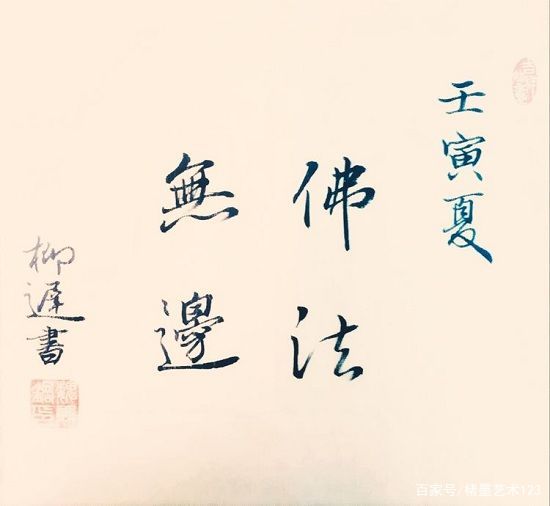 壬寅夏
佛法
無邊
柳遲書
百家号/楮墨艺术123